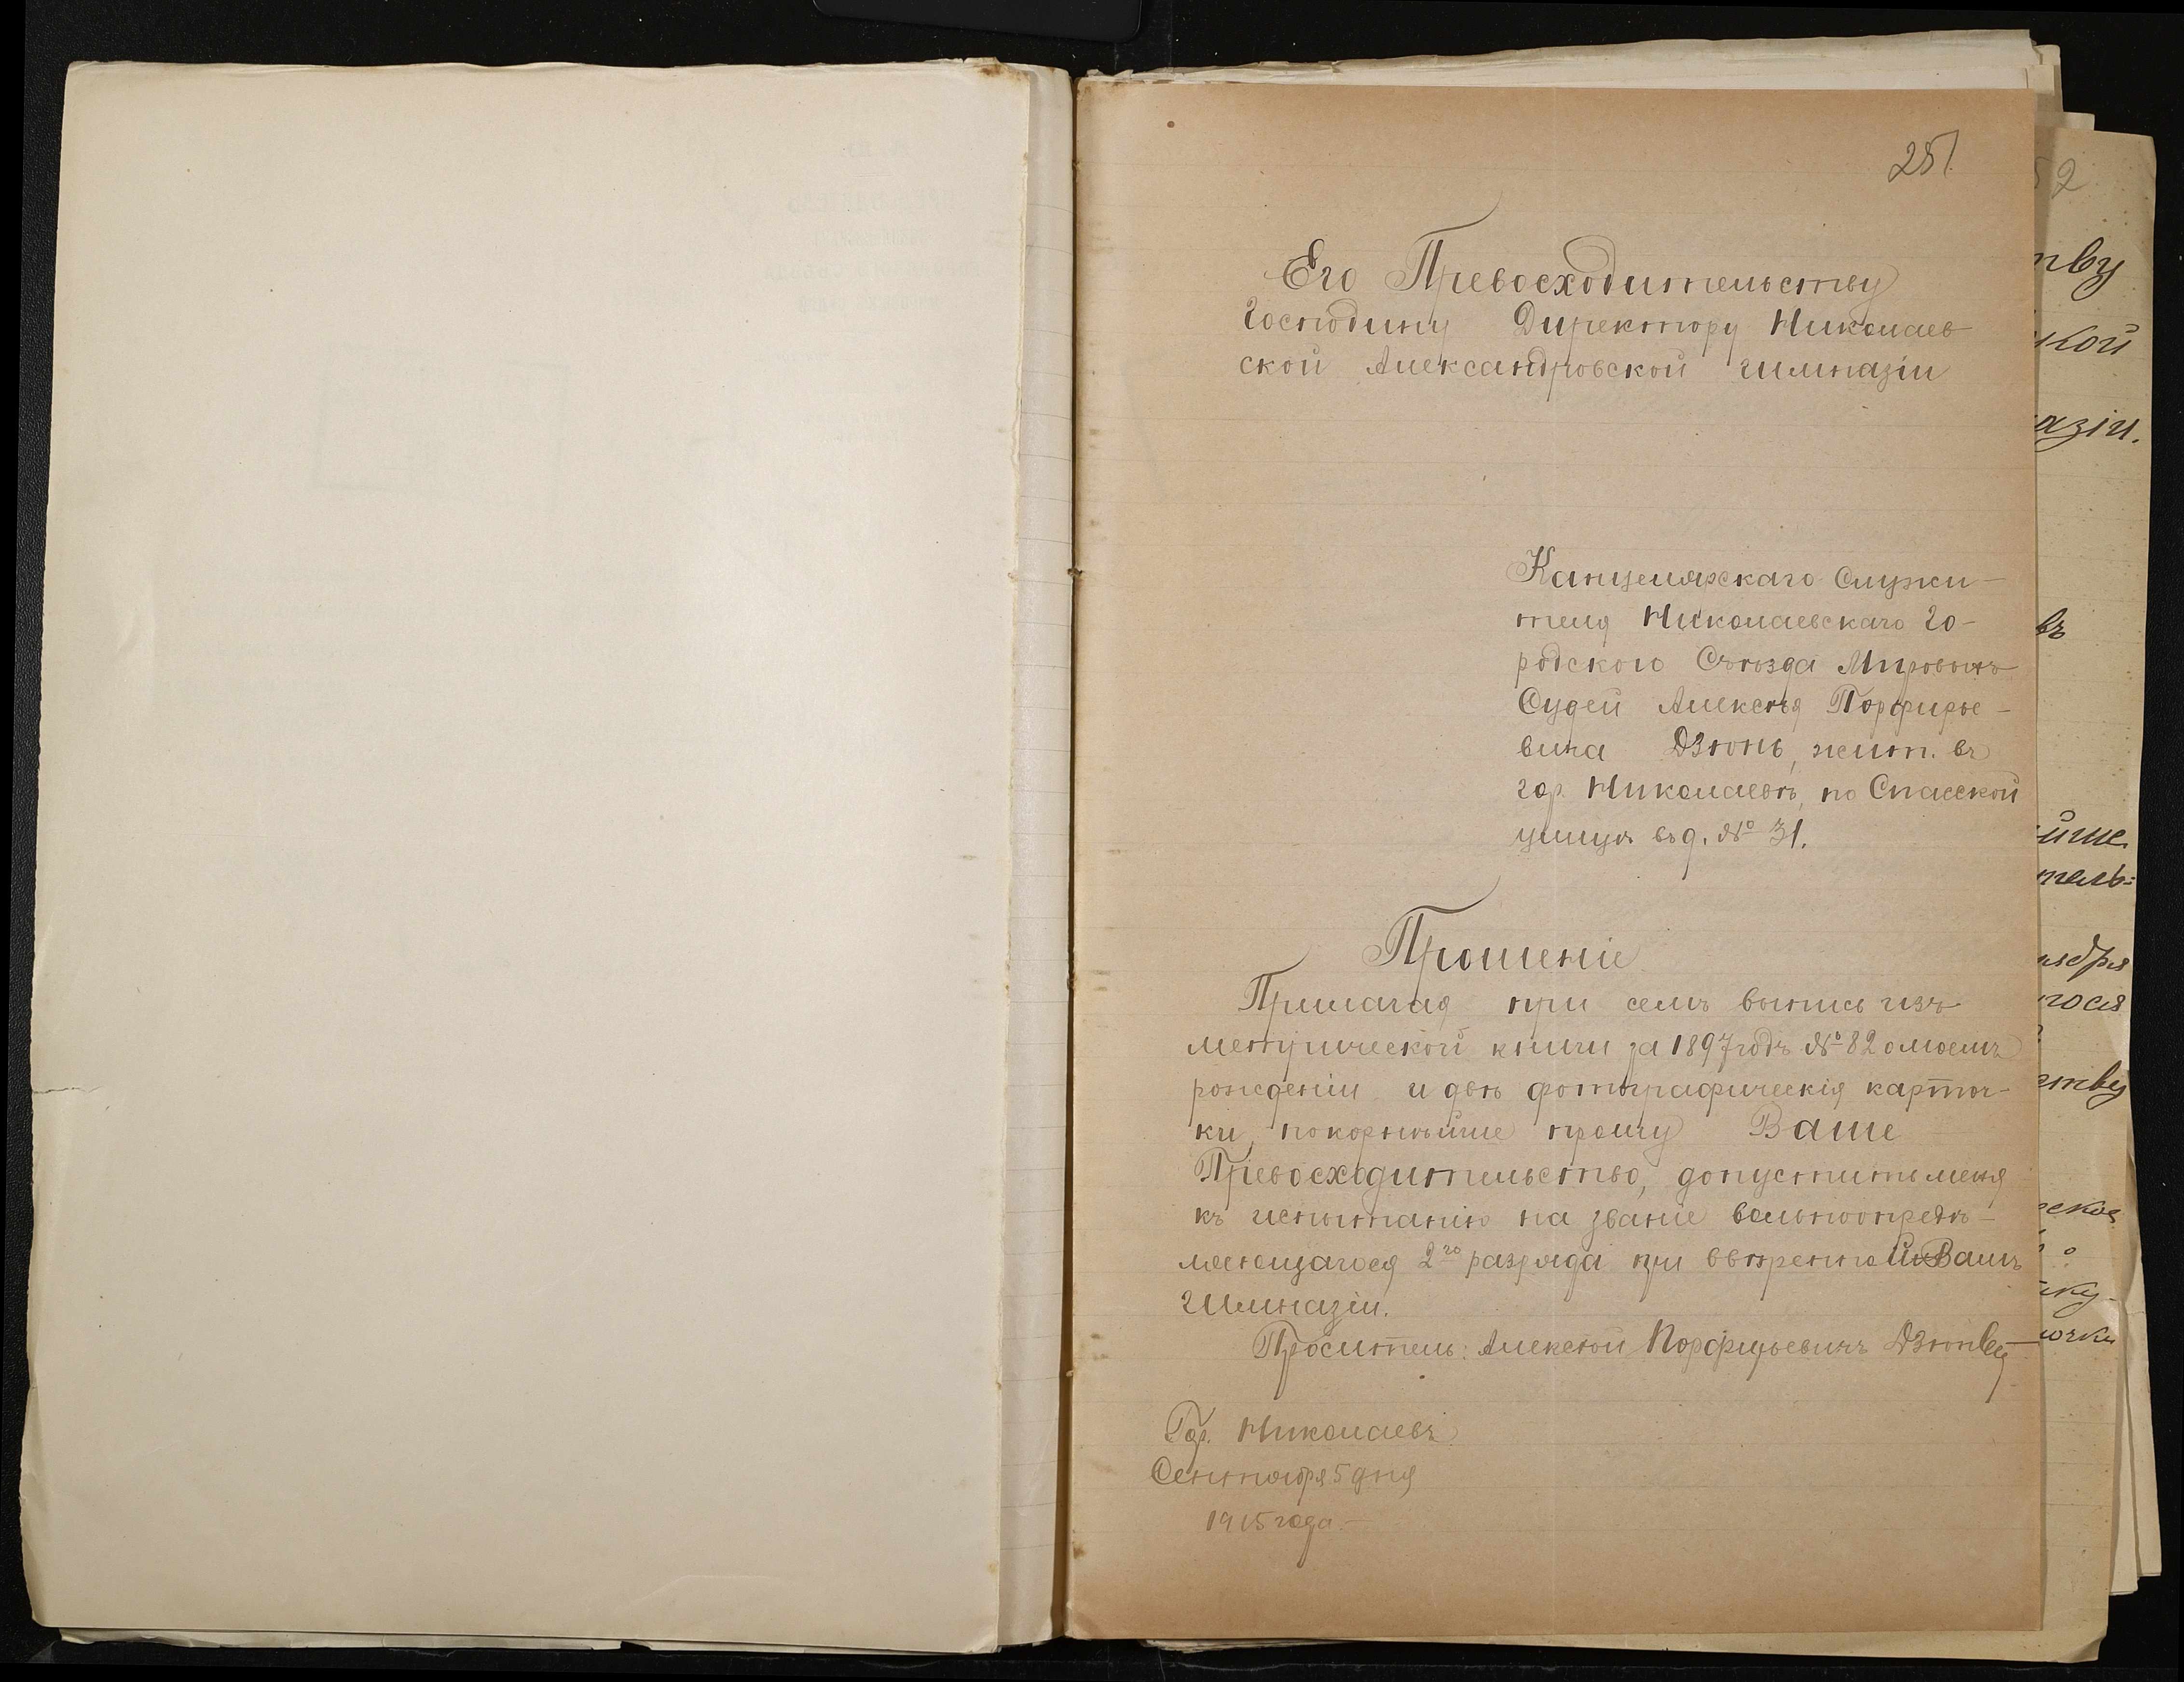 251
Его Превосходительству
Господину Директору Николаев
ской Александровской гимназіи
Канцелярскаго Служи-
теля Николаевскаго Го-
родского Съѣзда Мировыхъ
Судей Алексѣя Порфирье-
вича Дзюнь, жит. въ
гор. Николаевѣ, по Спасской
улицѣ въ д. № 31.
Прошеніе
Прилагая при семъ выпись изъ
метрической книги за 1897 годъ № 82 о моемъ
рожденіи и двѣ фотографическія карточ-
ки, покорнѣйше прошу Ваше
Превосходительство, допустить меня
къ испытанію на званіе вольноопредѣ-
ляющагося 2го разряда при ввѣренной Вамъ
Гимназіи.
Проситель: Алексѣй Порфирьевичъ Дзюнь
Гор. Николаевъ
Сентября 5 дня
1915 года.
52
тву
кой
азіи.
въ
йше
тель=
ября
гося
ству
ское
ку-
очки